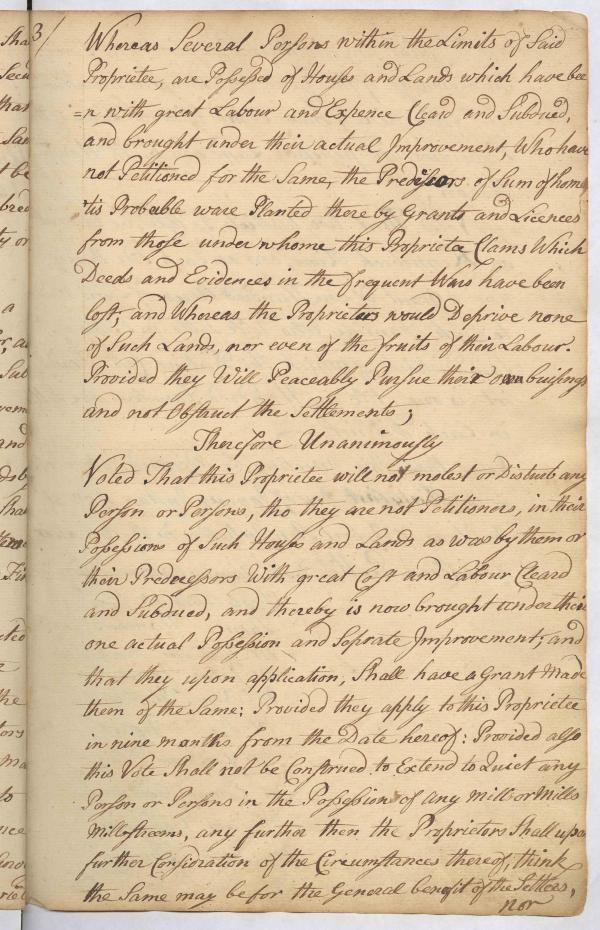 3/
Whereas Several Persons within the Limits of Said
Proprietee, are Possessed of Houses and Lands which have bee
=n with great Labour and Expence Cleard and Subdued,
and brought under their actual Improvement, Who have
not Petitioned for the Same, the Predissors of Sum of home
'tis Probable ware Planted there by Grants and Licences
from those under whome this Proprietee Clams Which
Deeds and Evidences in the frequent Wars have been
lost; and Whereas the Proprietors would Deprive none
of Such Lands, nor even of the fruits of their Labour.
Provided they Will Peaceably Pursue their own buisings
and not Obstruct the Settlements;
Therefore Unanimously
Voted That this Proprietee will not molest or Disturb any
Person or Persons, tho they are not Petitioners, in their
Possessions of Such Houses and Lands as was by them or
their Predecessors With great Cost and Labour Cleard
and Subdued, and thereby is now brought under their
one actual Possession and Seprate Improvement; and
that they upon application, Shall have a Grant Made
them of the Same: Provided they apply to this Proprietee
in nine months from the Date hereof: Provided also
this Vote Shall not be Construed to Extend to Quiet any
Person or Persons in the Possession of any Mill or Mills
Millstreems, any further then the Proprietors Shall upon
further Consideration of the Circumstances thereof, think
the Same may be for the General benefit of the Settlers,
nor